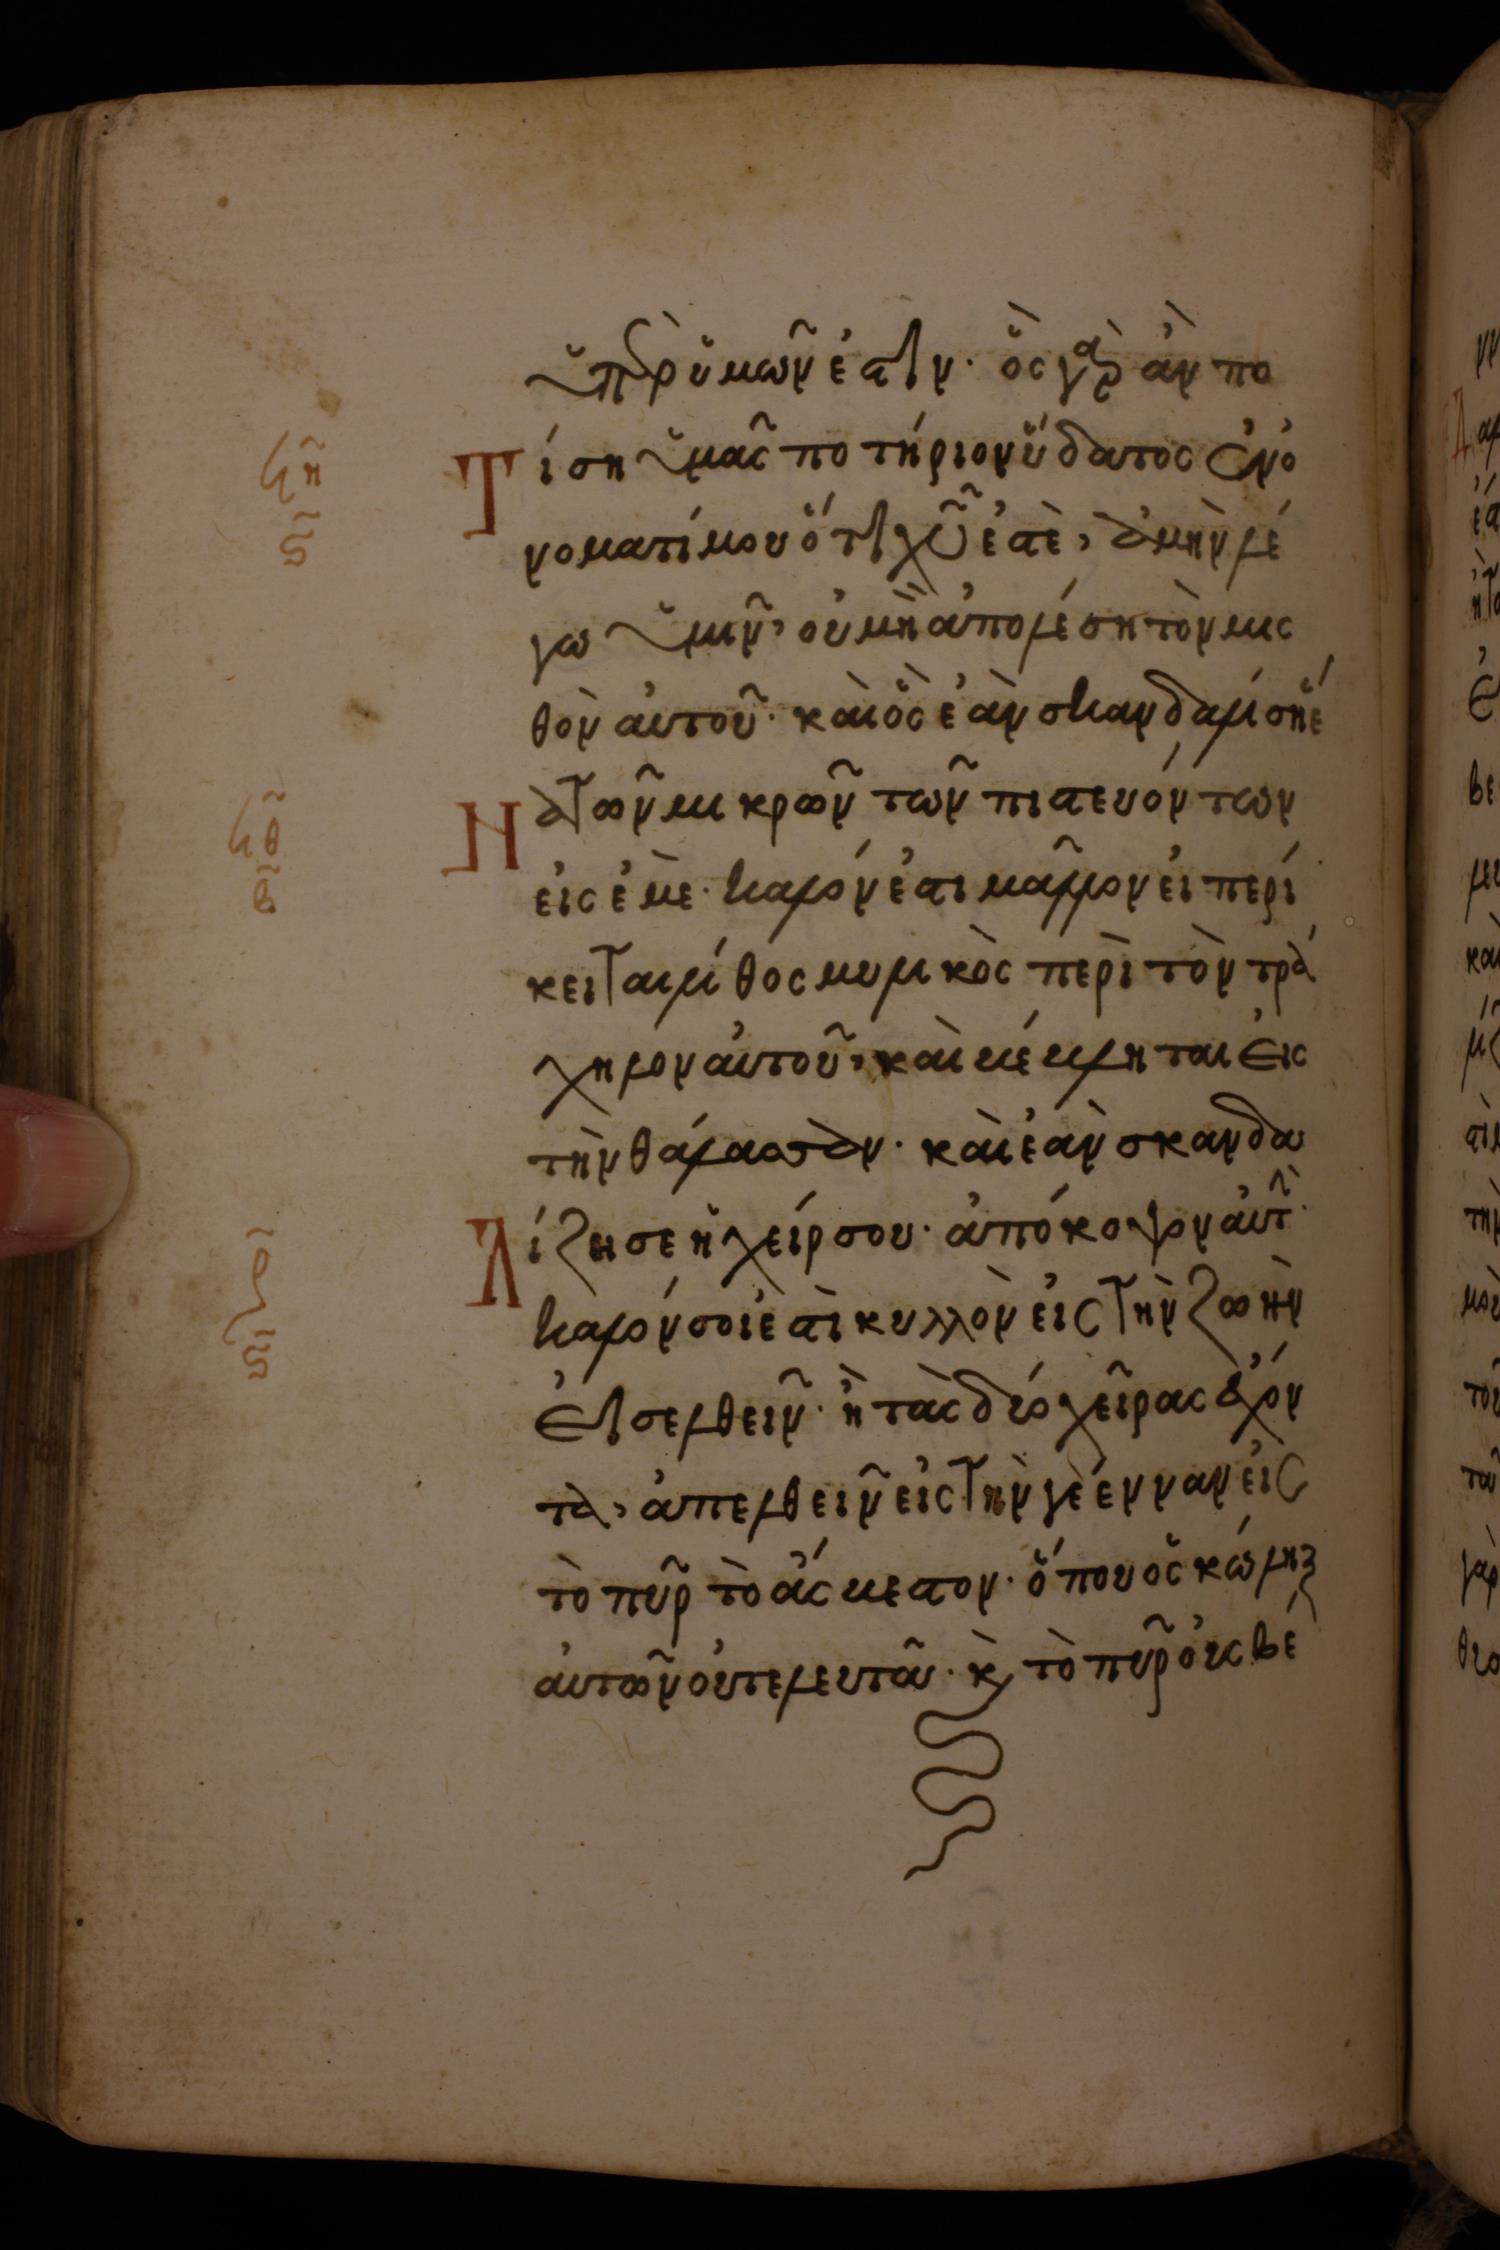 ὑπὲρ ὑμῶν ἐστιν· ὃς γὰρ ἂν πο
Τίση ὑμᾶς ποτήριον ὕδατος ἐν ὀ
νοματί μου ὅτι χῦ ἐστὲ, ἀμὴν λέ
γω ὑμῖν, οὐ μὴ ἀπολέση τὸν μισ
θὸν ἀυτοῦ· καὶ ὃς ἐὰν σκανδαλίση ἕ
Να τῶν μικρῶν τῶν πιστευόντων
εἰς ἐμὲ· καλόν ἐστι μᾶλλον εἰ περί
κειται λίθος μυλικὸς περὶ τὸν τρά
χηλον ἀυτοῦ, καὶ βέβληται εἰς
τὴν θάλασσαν· καὶ ἐὰν σκανδα
Λίζη σε ἡ χείρ σου· ἀπόκοψον ἀυτ·
καλόν σοι ἐστὶ κυλλὸν εἰς τὴν ζωὴν
εἰσελθεῖν· ἢ τὰς δύο χεῖρας ἔχον
τα, ἀπελθεῖν εἰς τὴν γέενναν εἰς
τὸ πῦρ τὸ ἄσβεστον· ὅπου ὁ σκώληξ
ἀυτῶν οὐ τελευτᾶ· κ τὸ πῦρ οὐ σβέ
ϟη
ϛ
ϟθ
β
ρ
ϛ